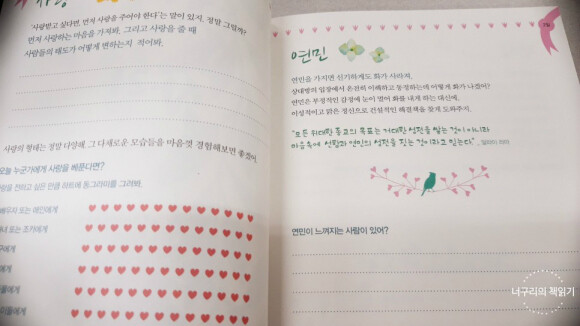 사랑
"사랑받고 싶다면, 먼저 사랑을 주어야 한다"는 말이 있지. 정말 그럴까?
먼저 사랑하는 마음을 가져봐. 그리고 사랑을 줄 때
사람들의 태도가 어떻게 변하는지 적어봐.
사랑의 형태는 정말 다양해. 그 다채로운 모습들을 마음껏 경험해보면 좋겠어.
오늘 누군가에게 사랑을 베푼다면?
사랑을 전하고 싶은 만큼 하트에 동그라미를 그려봐.
배우자 또는 애인에게
자녀 또는 조카에게
에게
에게
들에게
이들에게
연민
연민을 가지면 신기하게도 화가 사라져.
상대방의 입장에서 온전히 이해하고 동정하는데 어떻게 화가 나겠어?
연민은 부정적인 감정에 눈이 멀어 화를 내게 하는 대신에,
이성적이고 맑은 정신으로 건설적인 해결책을 찾게 도와주지.
"모든 위대한 종교의 목표는 거대한 성전을 쌓는 것이 아니라
마음속에 선함과 연민의 성전을 짓는 것이라고 믿는다" _달라이 라마
연민이 느껴지는 사람이 있어?
너구리의 책읽기